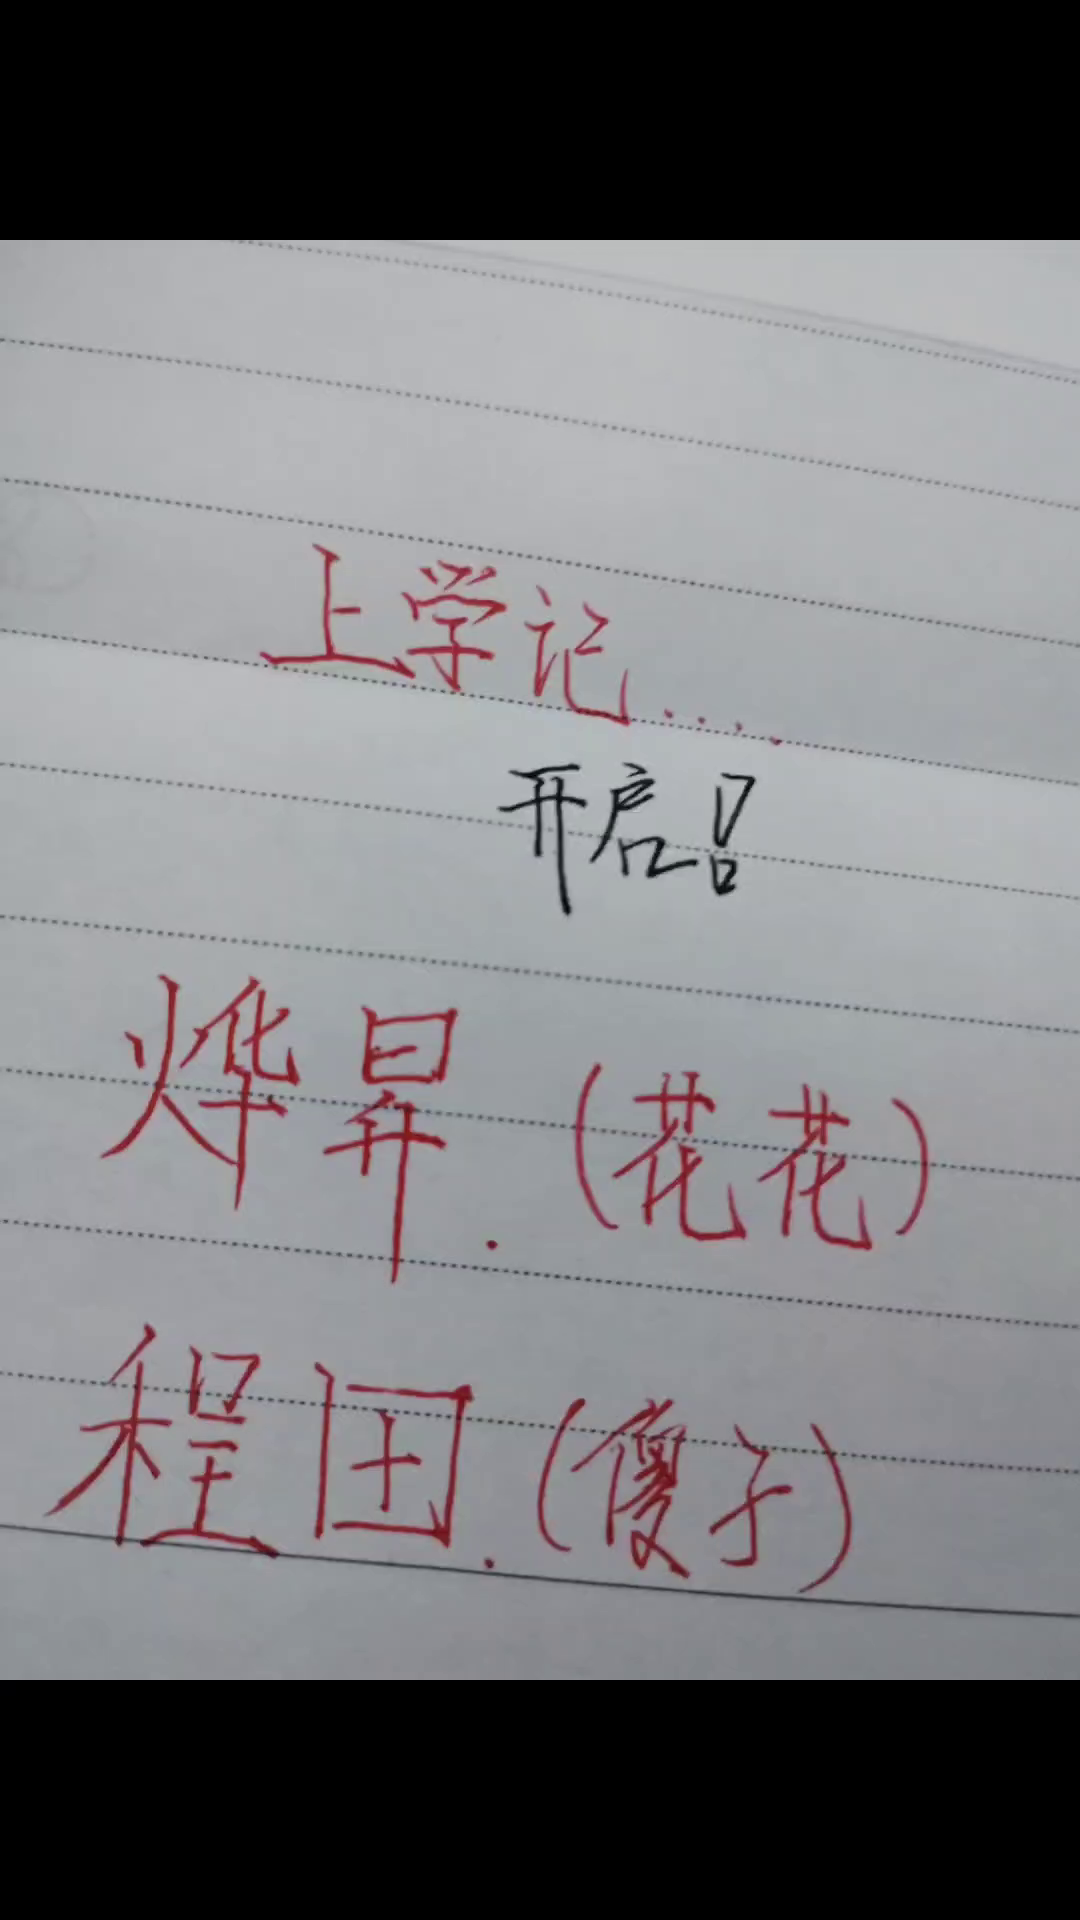 上学记....
开启!
烨昇.(花花)
程田.(傻子)